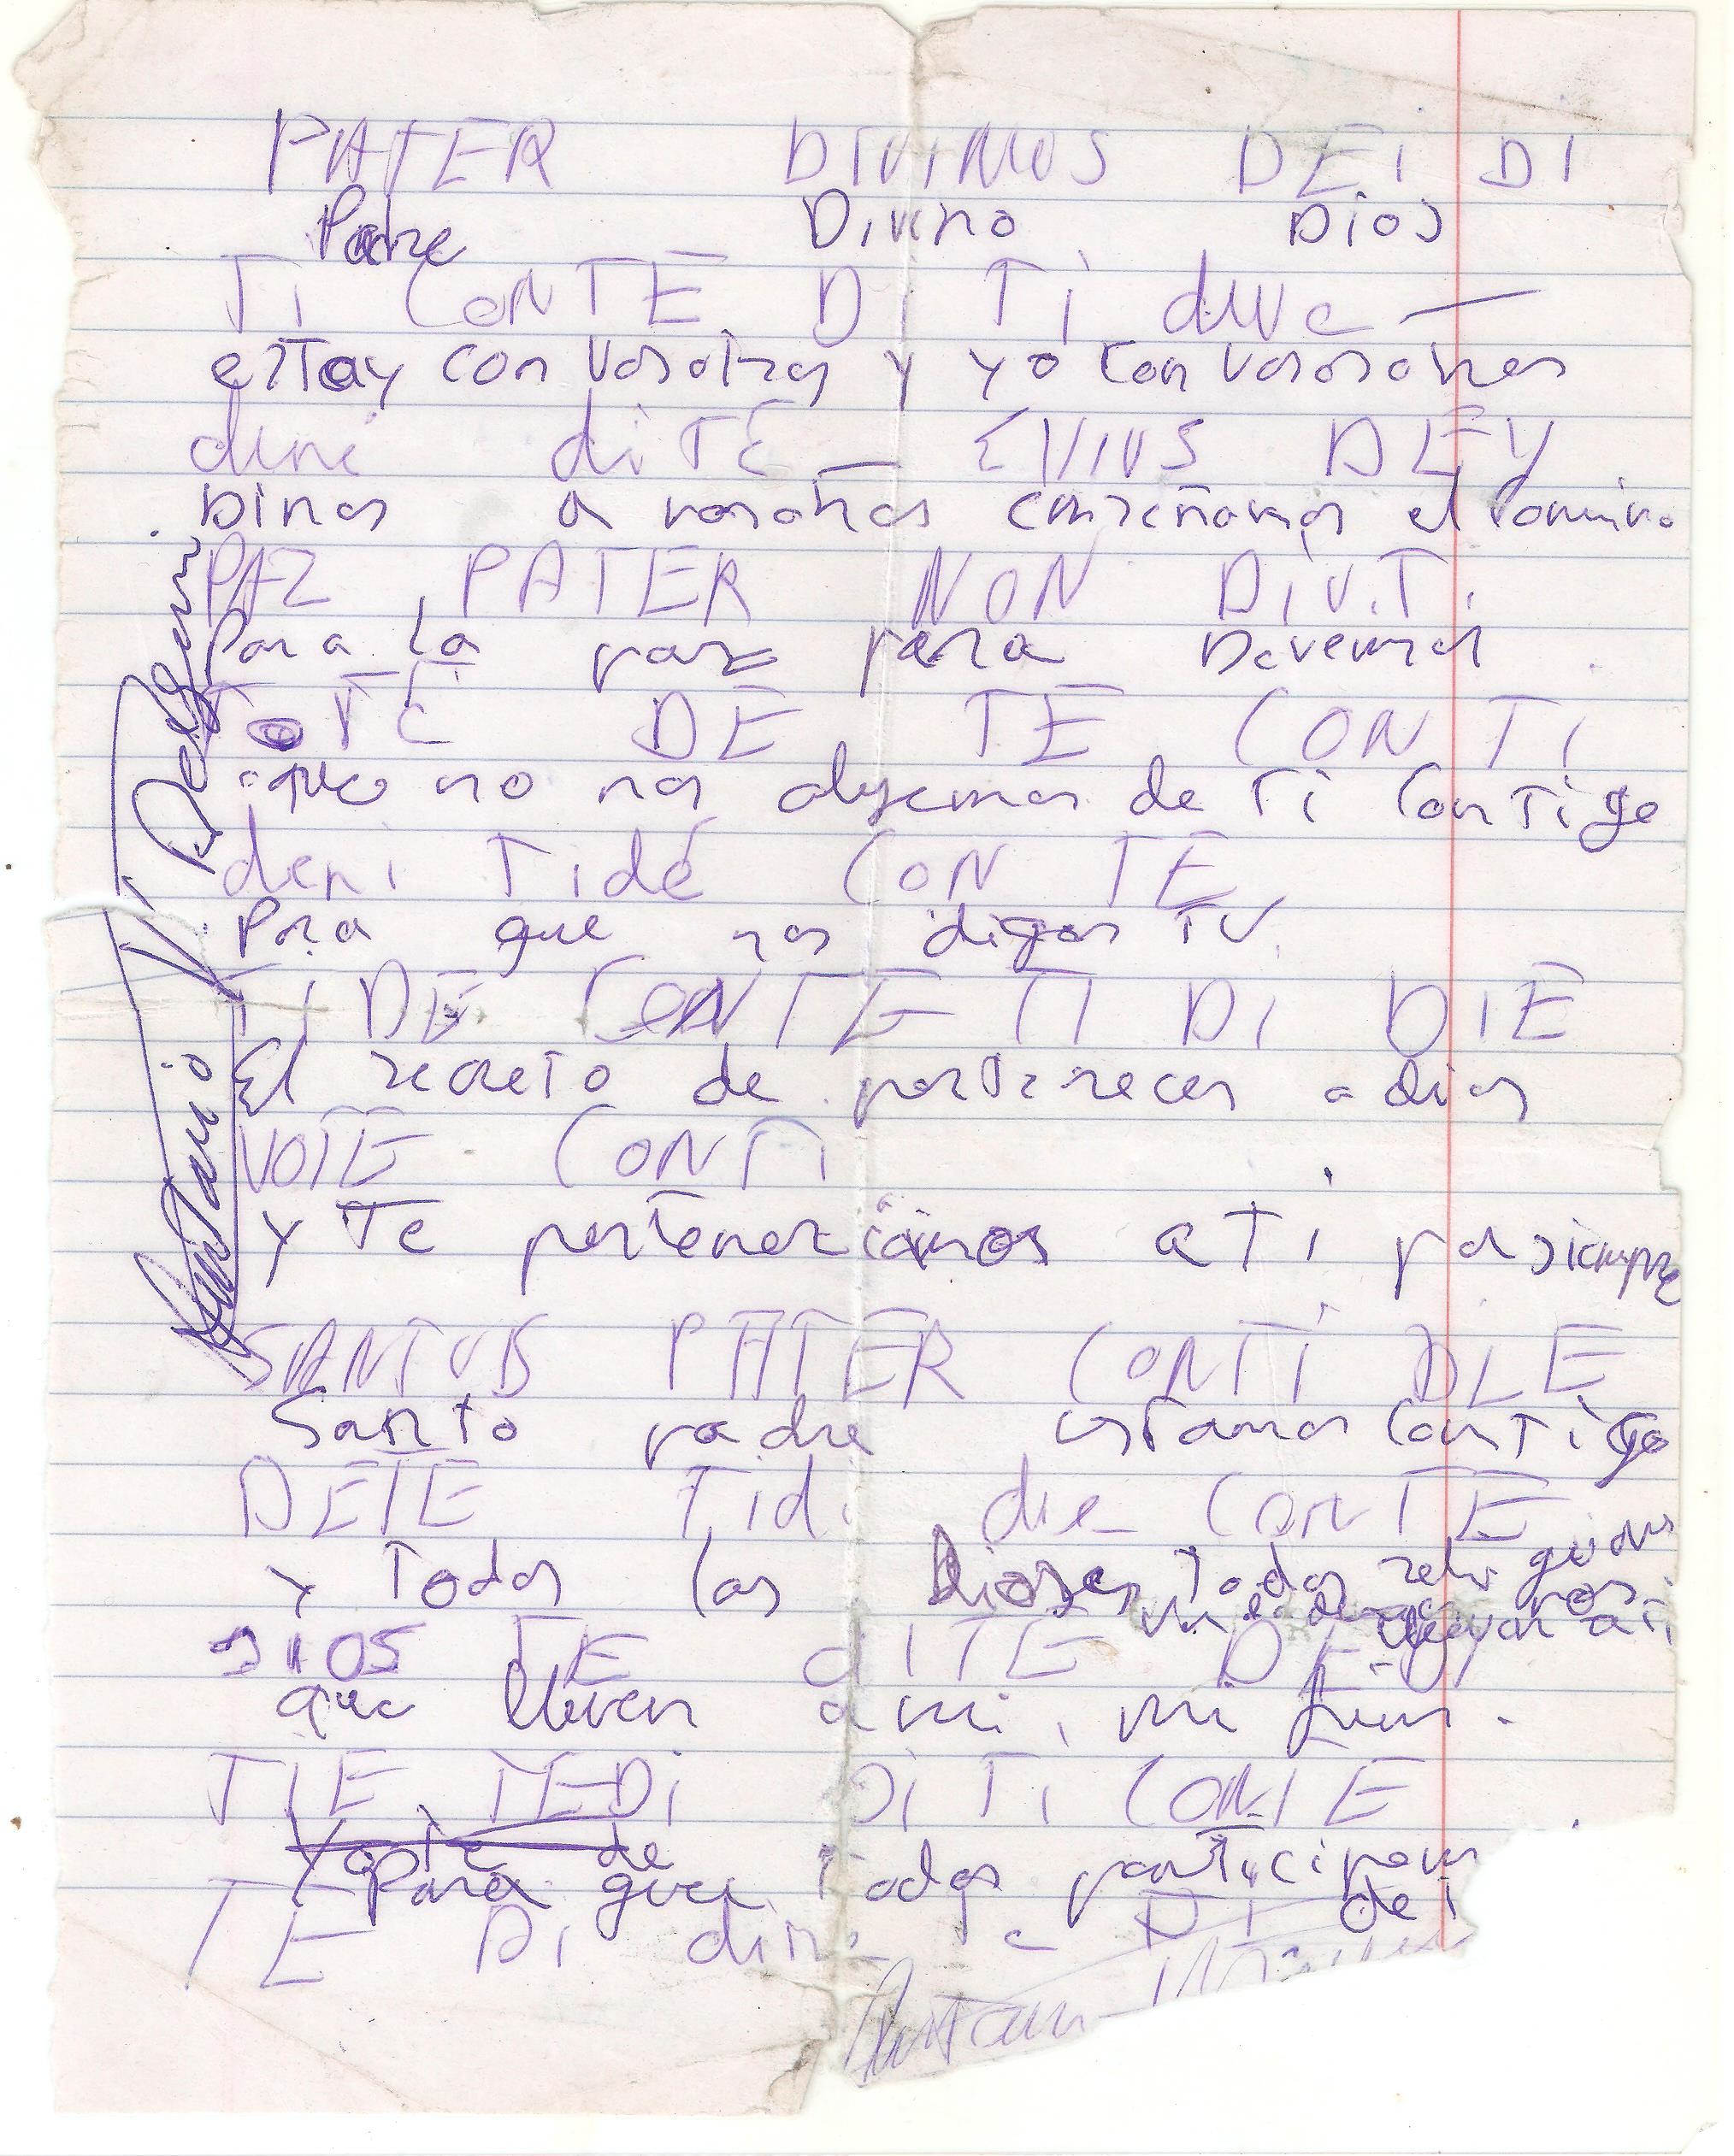 PATER DIVINUS DEI DI
Padre Divino Dios
TI CONTE DI TI duve —
estoy con vosotros y yo con vosotros
dine diTE — EVIUS DEY
Dinos a vosotros enseñamos el camino
PAZ PATER NON DIV.T.
Para la paz para
TOTE DE TE CON TI
que no nos alejemos de Ti Contigo
deni Tidé CON TE
Para que nos digas TU.
TI DE CONTE TI DI DIE
El secreto de pertenecer a dios
VOTE CONTI
y Te pertenezcamos a Ti por siempre
SANTUS PATER CONTI DLE
Santo padre estamos Contigo
DETE Tidi die CONTE
y Todos los Dioses Todas religiones
nos a Ti
DIOS TE dITE DEY
que lleven a mi, mi
TIE TEDI DI TI CONTE
Yo te de
Para que Todos
TE DI DI de
Antonio
Antonio